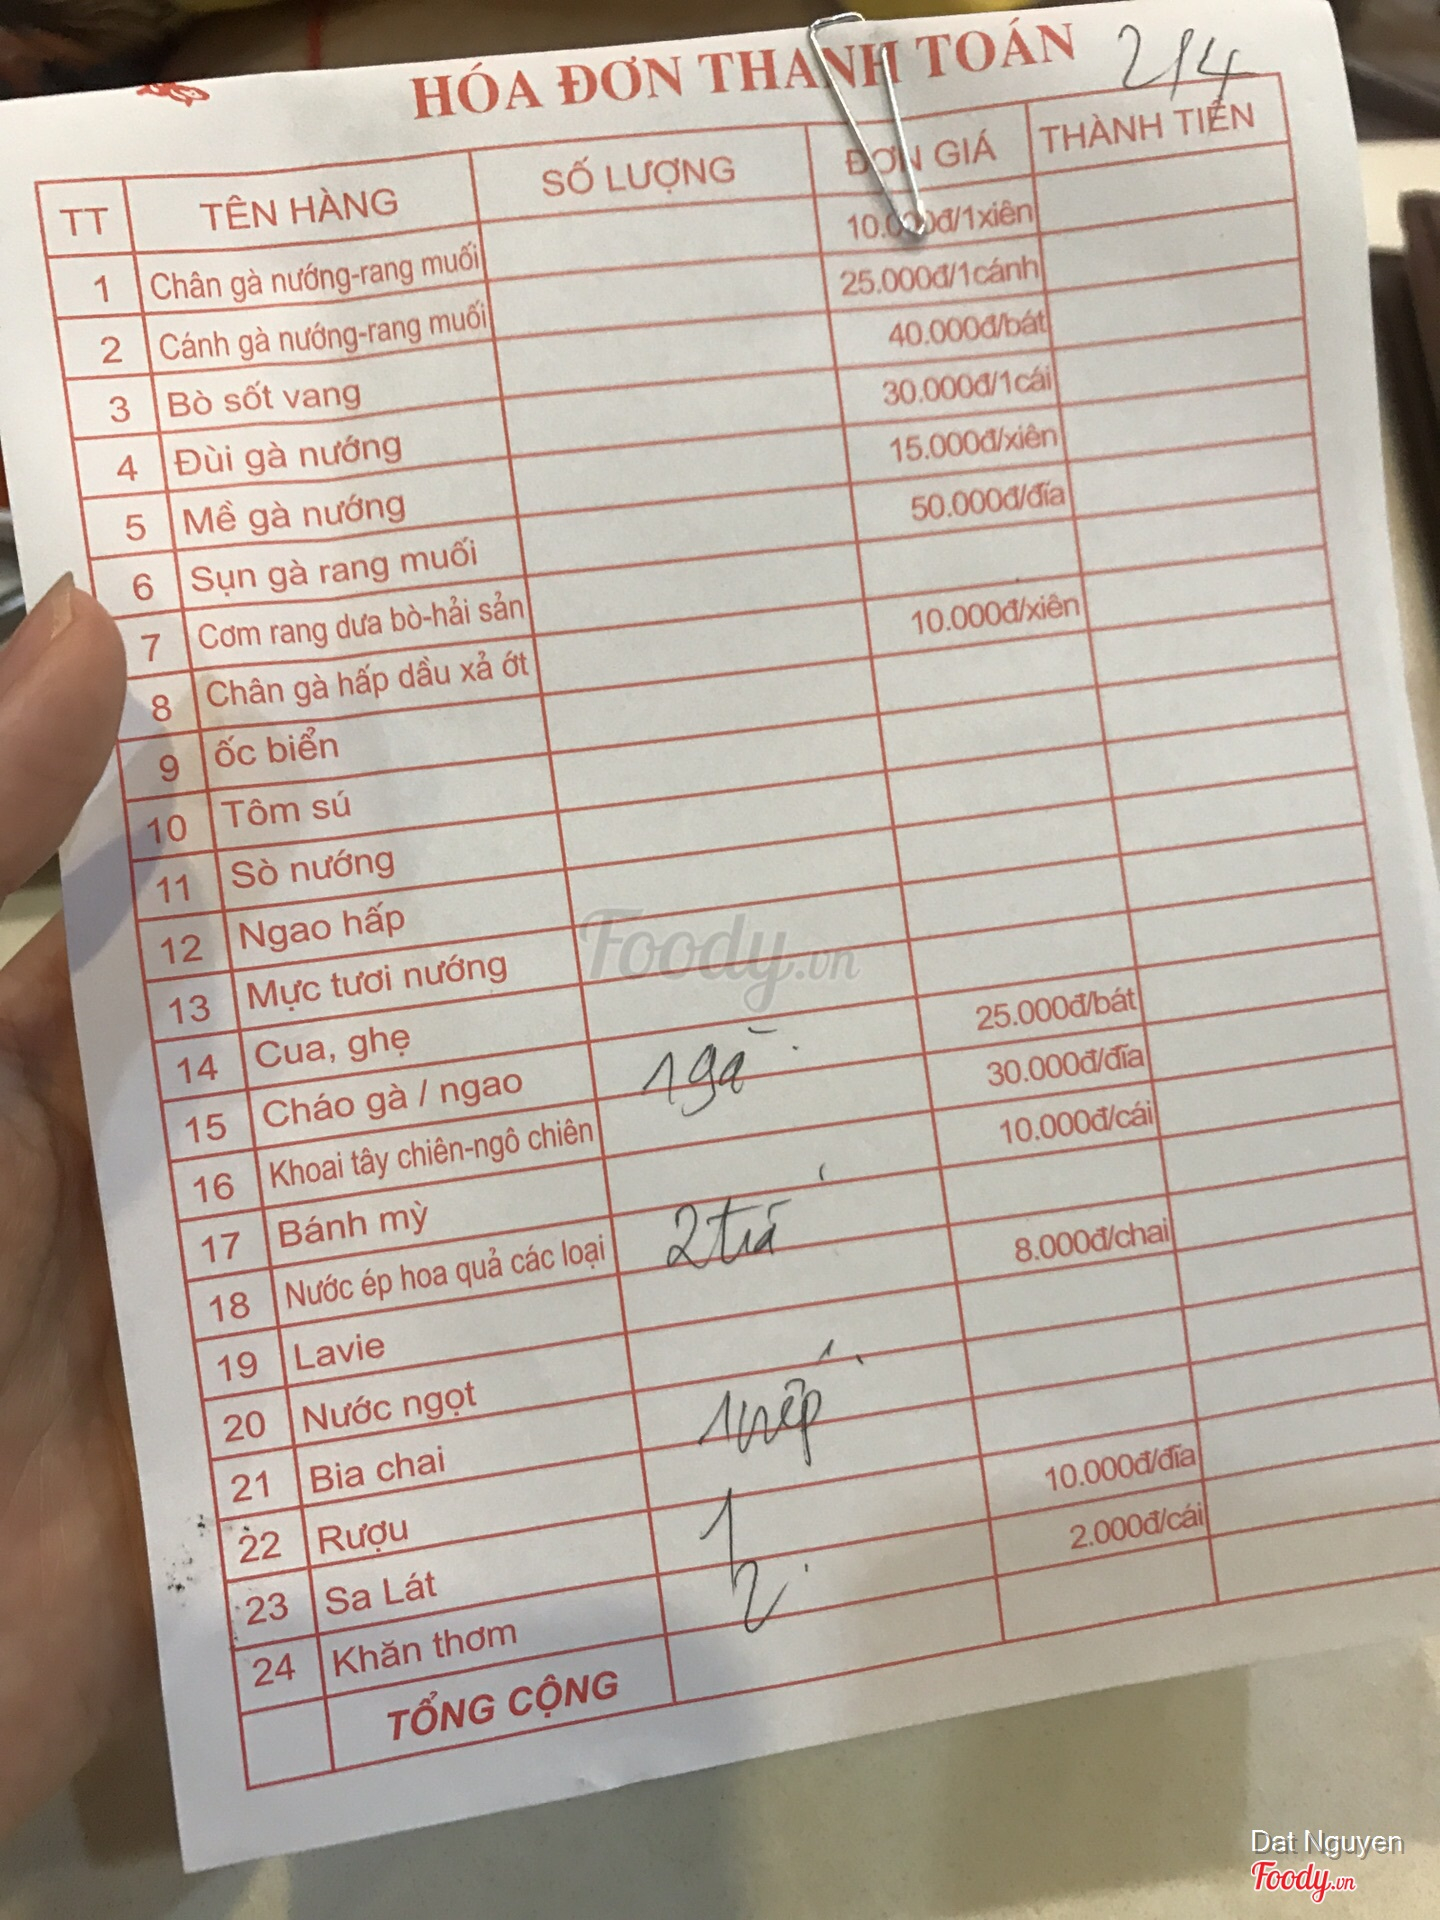 HÓA ĐƠN THANH TOÁN 2/4
TT TÊN HÀNG SỐ LƯỢNG ĐƠN GIÁ THÀNH TIỀN
1 Chân gà nướng-rang muối 10.000đ/1xiên
2 Cánh gà nướng-rang muối 25.000đ/1cánh
3 Bò sốt vang 40.000đ/bát
4 Đùi gà nướng 30.000đ/1cái
5 Mề gà nướng 15.000đ/xiên
6 Sụn gà rang muối 50.000đ/đĩa
7 Cơm rang dưa bò-hải sản
8 Chân gà hấp dầu xả ớt 10.000đ/xiên
9 ốc biển
10 Tôm sú
11 Sò nướng
12 Ngao hấp
13 Mực tươi nướng
14 Cua, ghẹ
15 Cháo gà / ngao 1 gà 25.000đ/bát
16 Khoai tây chiên-ngô chiên 30.000đ/đĩa
17 Bánh mỳ 10.000đ/cái
18 Nước ép hoa quả các loại 2 trá
19 Lavie 8.000đ/chai
20 Nước ngọt
21 Bia chai 1 nếp
22 Rượu
23 Sa Lát 1 10.000đ/đĩa
24 Khăn thơm 2 2.000đ/cái
TỔNG CỘNG
Foody.vn
Dat Nguyen
Foody.vn